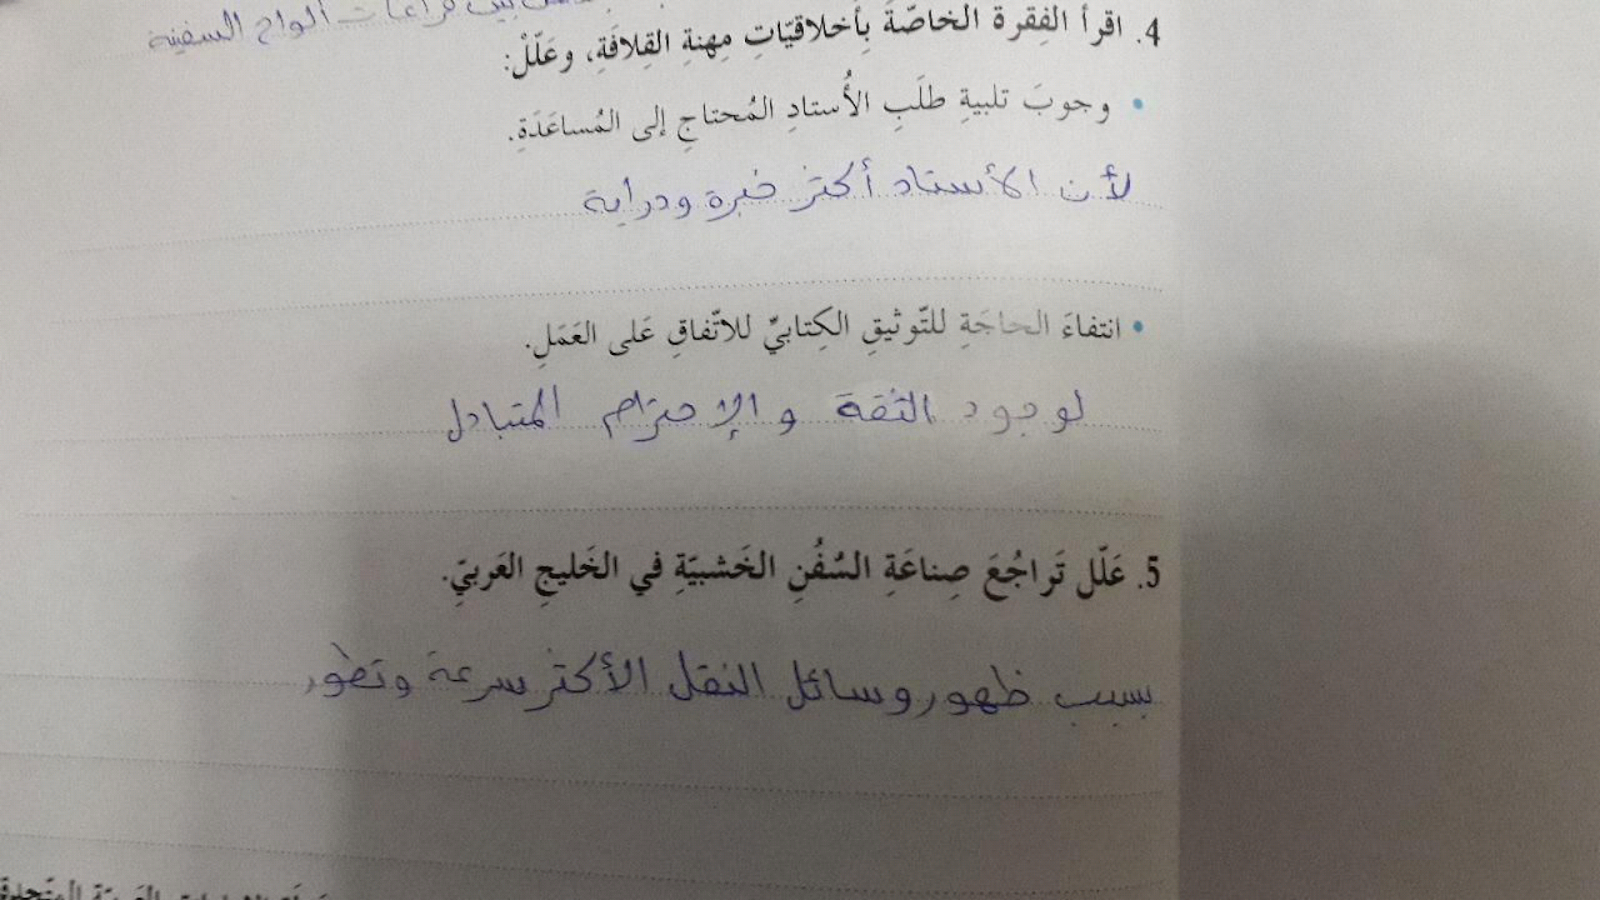 بين فراغات ألواح السفينة
4. اقرأ الفِقرة الخاصّةَ بِأخلاقيّاتِ مِهنةِ القِلافَةِ، وعَلّلْ:
• وجوبَ تلبيةِ طلَبِ الأُستاذِ المُحتاجِ إلى المُساعَدَةِ.
لأن الأستاد أكتر خبرة ودراية
• انتفاءَ الحاجَةِ للتّوثيقِ الكِتابيِّ للاتّفاقِ عَلى العَمَلِ.
لوجود الثقة والإحترام المتبادل
5. عَلّل تَراجُعَ صِناعَةِ السُفُنِ الخَشبيّةِ في الخَليجِ العَربيّ.
بسبب ظهور وسائل النقل الأكتر سرعة وتطور